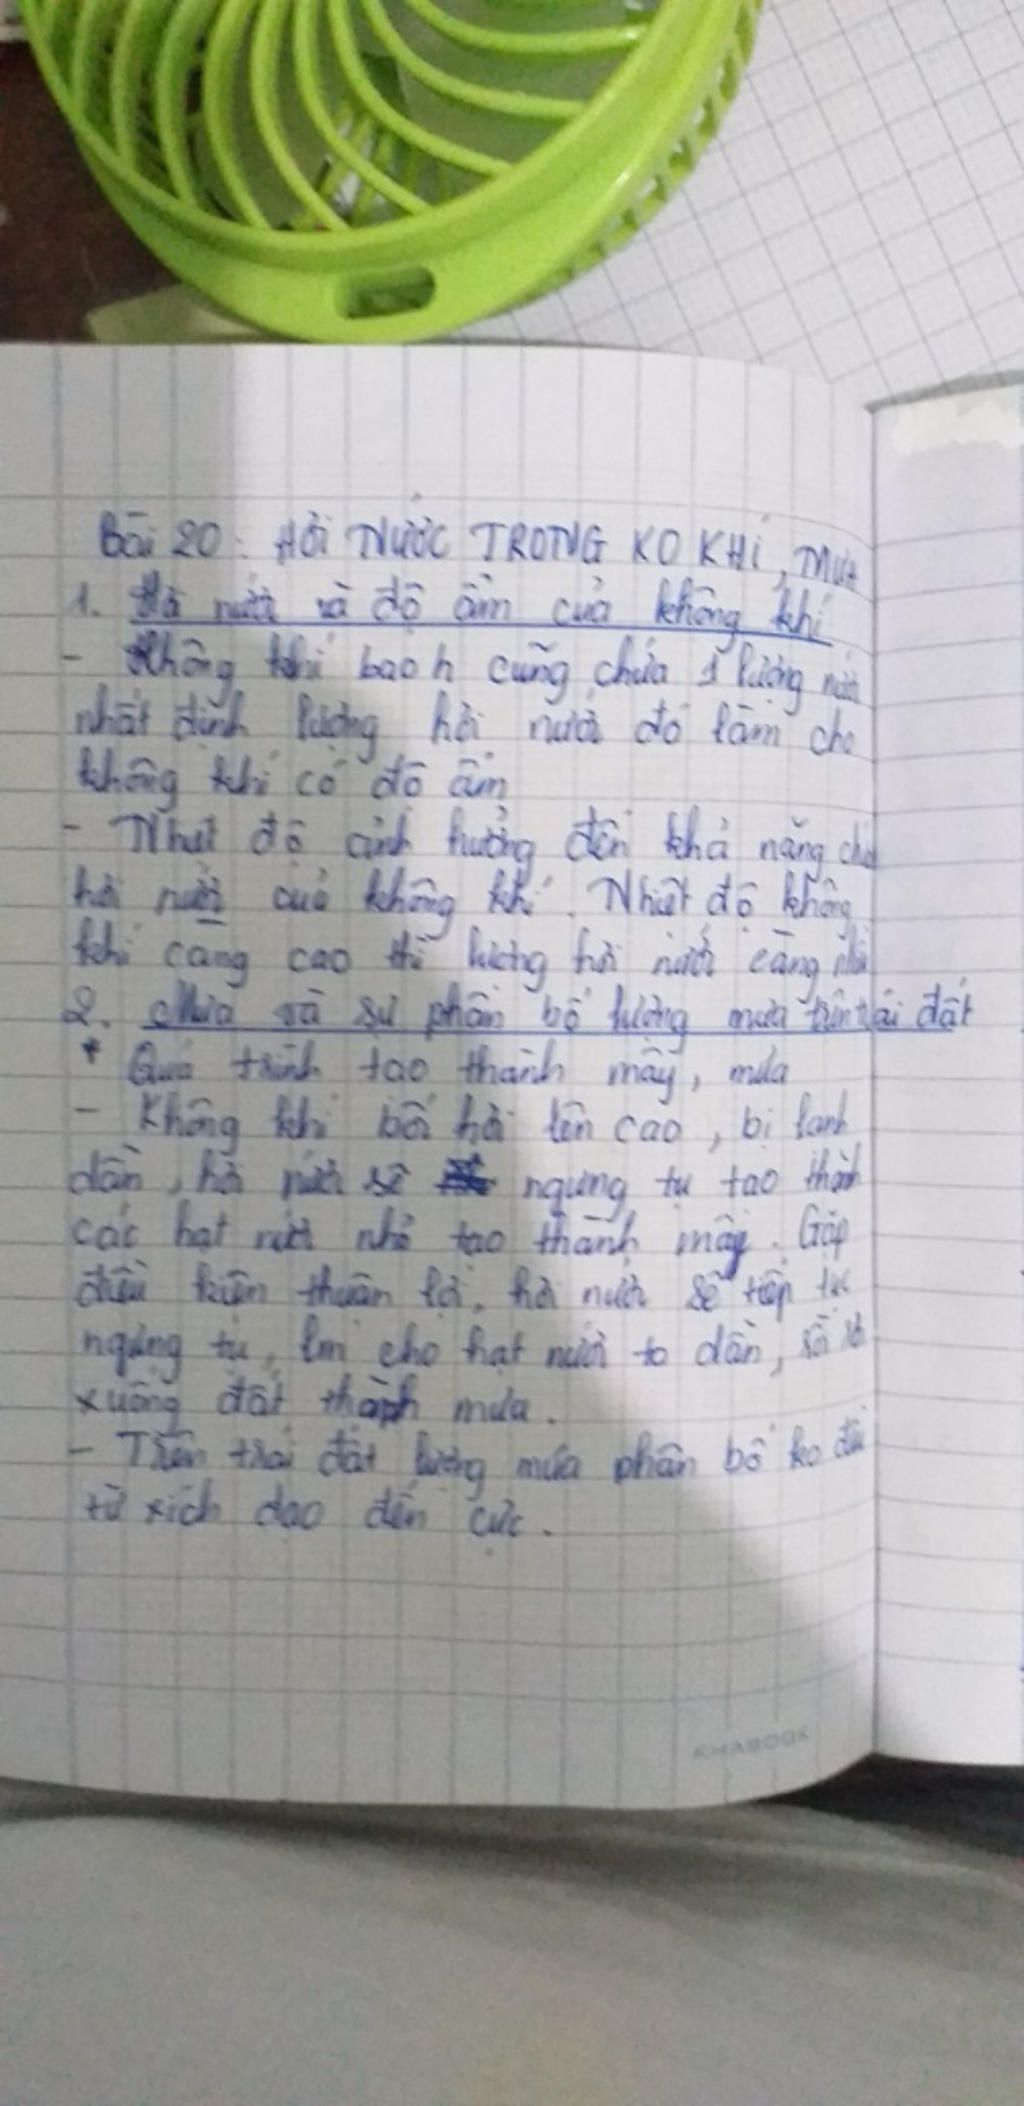 Bài 20: HƠI NƯỚC TRONG KO KHÍ, MƯA
1. Hơi nước và độ ẩm của không khí
- Không khí bao h cũng chứa 1 lượng nước
nhất định lượng hơi nước đó làm cho
không khí có độ ẩm
- Nhiệt độ ảnh hưởng đến khả năng chứa
hơi nước của không khí. Nhiệt độ không
khí càng cao thì lượng hơi nước càng nhiều
2. Mưa và sự phân bố lượng mưa trên trái đất
* Quá trình tạo thành mây, mưa
- Không khí bốc hơi lên cao, bị lạnh
dần, hơi nước sẽ ngưng tụ tạo thành
các hạt nước nhỏ tạo thành mây. Gặp
điều kiện thuận lợi, hơi nước sẽ tiếp tục
ngưng tụ, lm cho hạt nước to dần, rồi rơi
xuống đất thành mưa.
- Trên trái đất lượng mưa phân bố ko đều
từ xích đạo đến cực.
KHABOOK